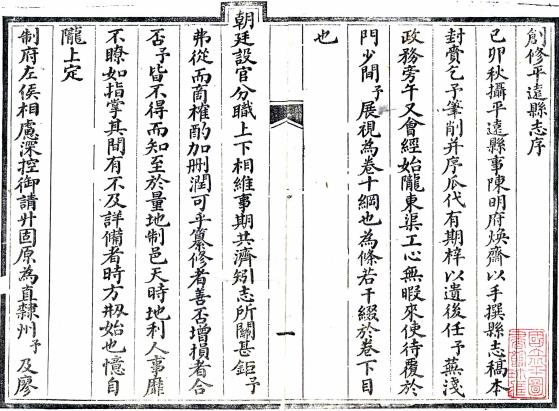 創修平遠縣志序
己卯秋攝平遠縣事陳明府煥齋以手撰縣志稿本
封賫乞予筆削并序瓜代有期梓以遺後任予蕪淺
政務旁午又會經始隴東渠工心無暇來使待覆於
門少閒予展視為卷十綱也為條若干綴於卷下目
也
朝廷設官分職上下相維事期共濟矧志所關甚鉅予
弗從而商榷酌加刪潤可乎纂修者善否增損者合
否予皆不得而知至於量地制邑天時地利人事靡
不瞭如指掌其間有不及詳備者時方刱始也憶自
隴上定
制府左侯相慮深控御請升固原為直隸州予及廖
一